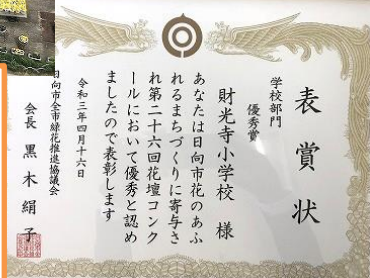 表賞状
学校部門
優秀賞
財光寺小学校 様
あなたは日向市花のあふ
れるまちづくりに寄与さ
れ第二十六回花壇コンク
ールにおいて優秀と認め
ましたので表彰します
令和三年四月十六日
日向市全市緑花推進協議会
会長 黒木絹子